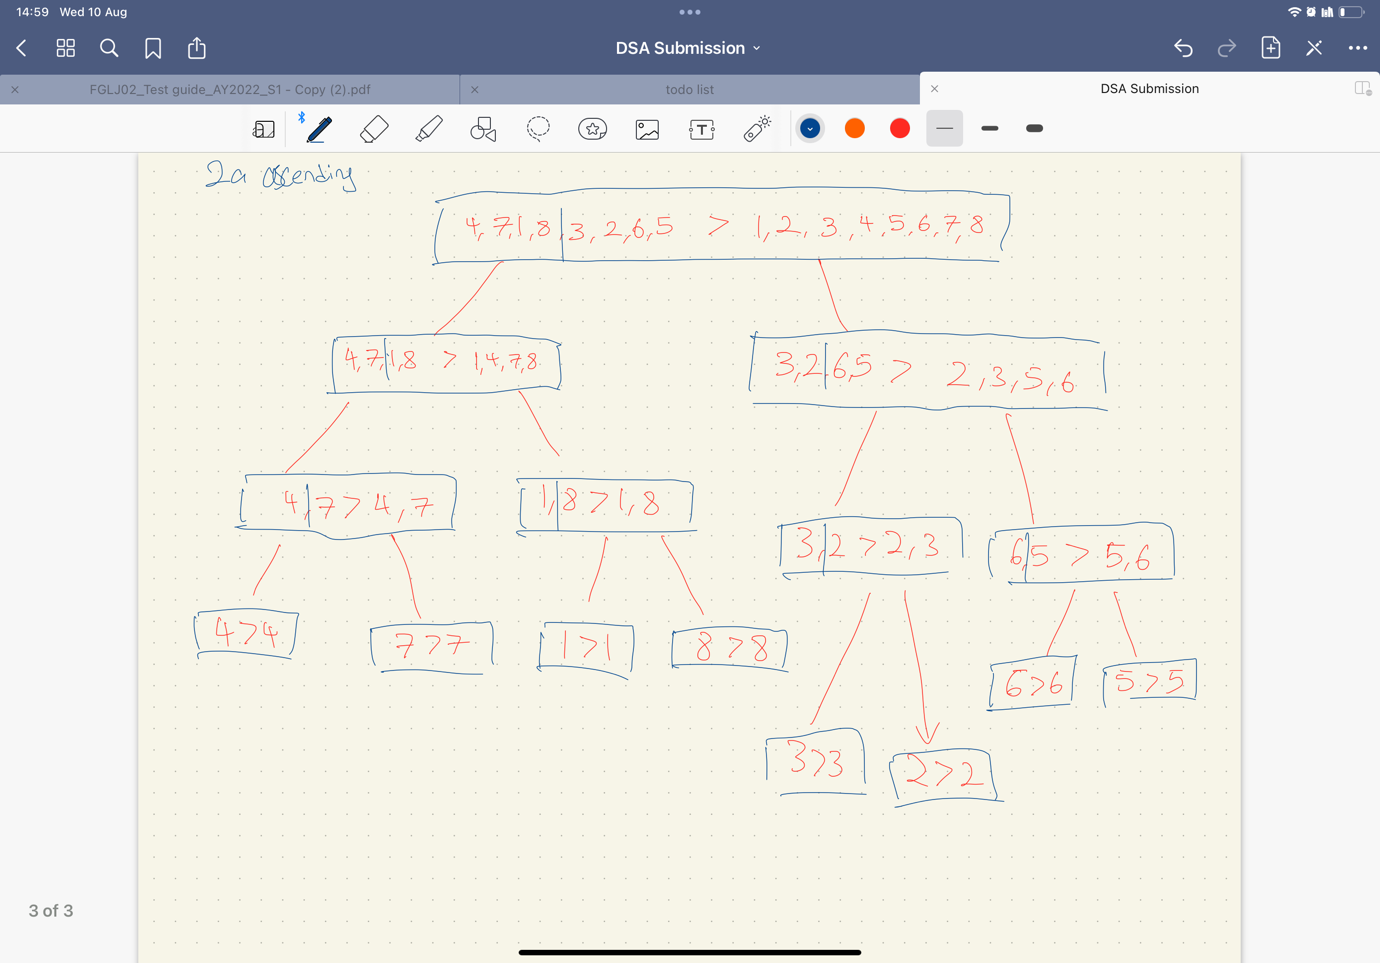 14:59 Wed 10 Aug
DSA Submission
FGLJ02_Test guide_AY2022_S1 - Copy (2).pdf
todo list
DSA Submission
T
2a ascending
4,7,1,8|3,2,6,5 > 1,2,3,4,5,6,7,8
4,7|1,8 > 1,4,7,8
3,2|6,5 > 2,3,5,6
4,|7 > 4,7
1,|8 > 1,8
3,|2 > 2,3
6,|5 > 5,6
4>4
7>7
1>1
8>8
6>6
5>5
3>3
2>2
3 of 3